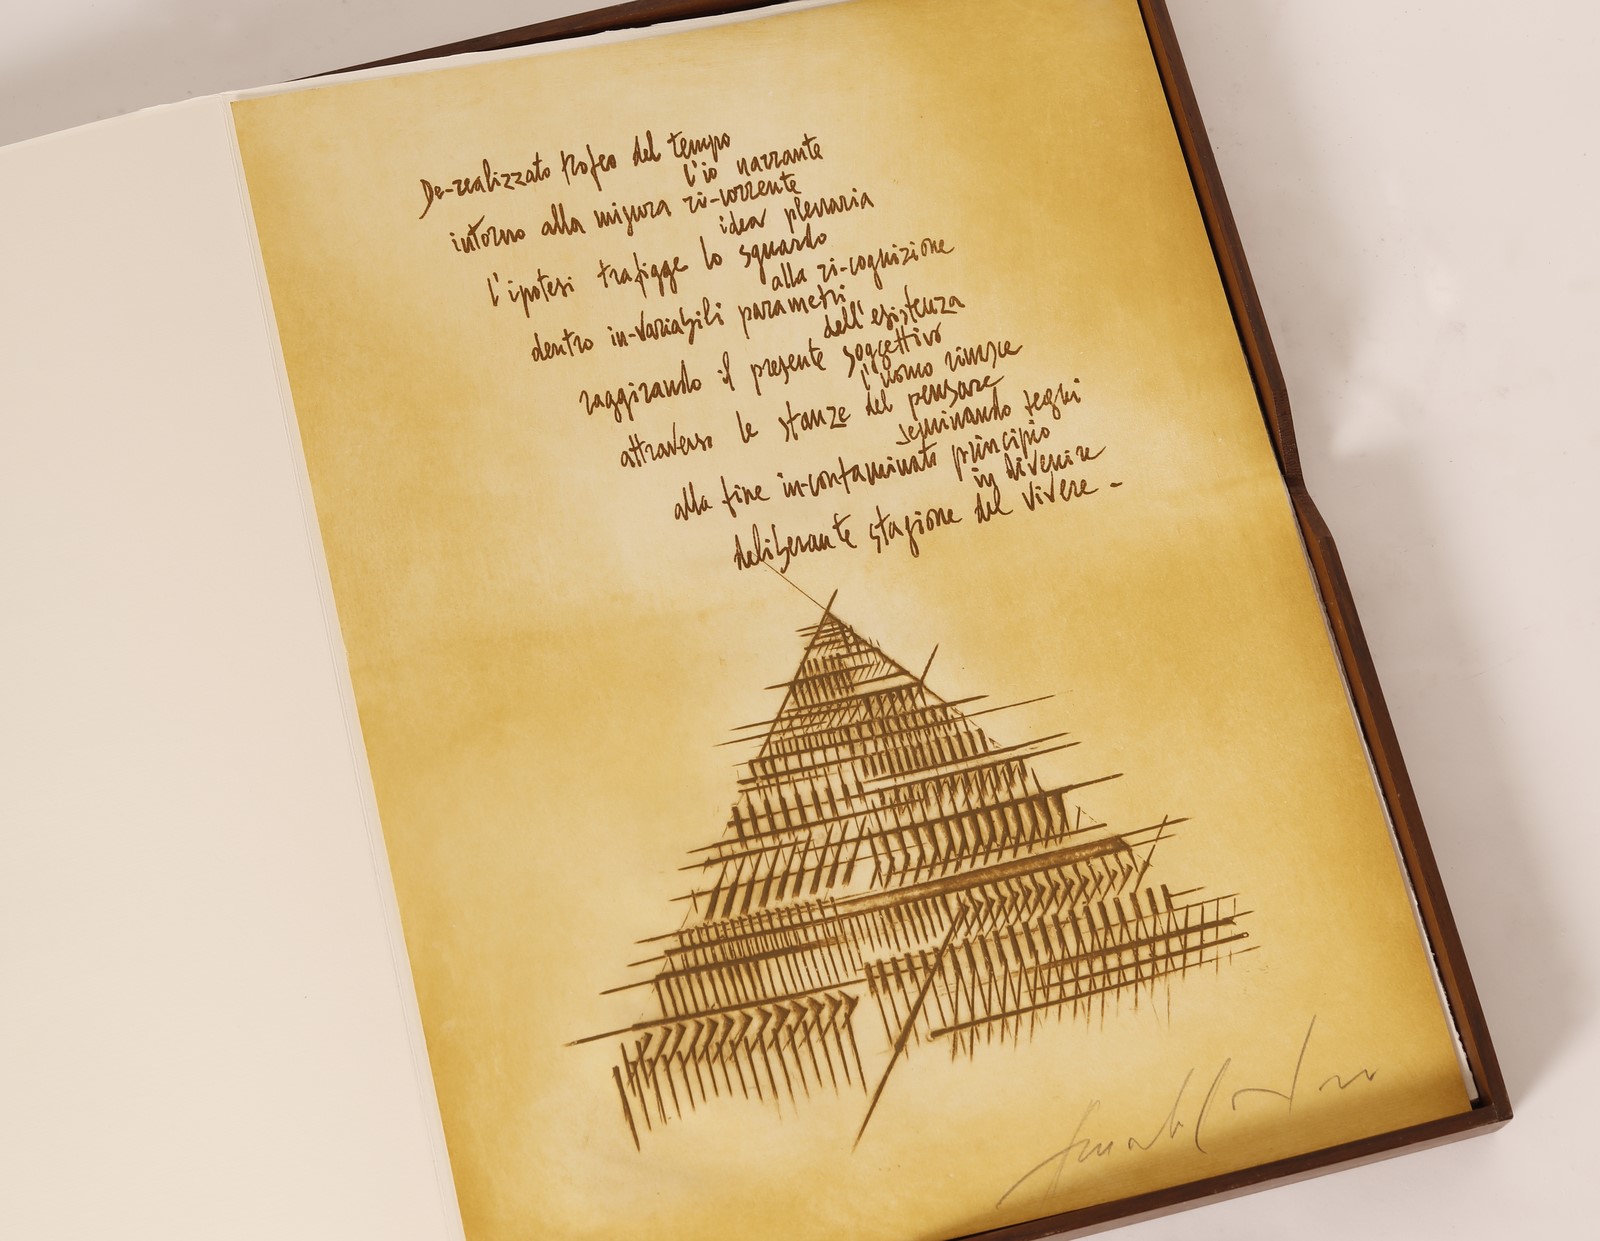 De-realizzato trofeo del tempo
l'io narrante
intorno alla misura ri-corrente
idea plenaria
l'ipotesi trafigge lo sguardo
alla ri-cognizione
dentro in-variabili parametri
dell'esistenza
raggirando il presente soggettivo
l'uomo riuesce
attraverso le stanze del pensare
seminando segni
alla fine in-contaminato principio
in divenire
deliberante stagione del vivere -